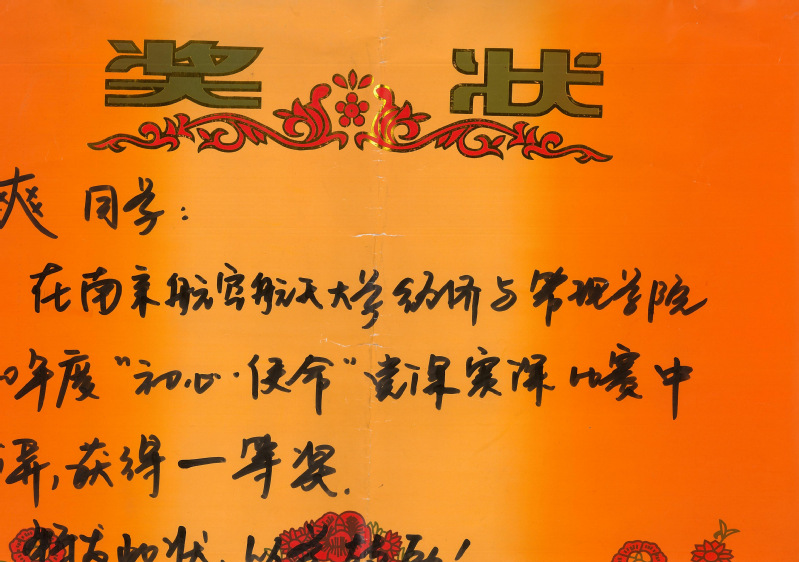 奖状
爽 同学:
在南京航空航天大学经济与管理学院
年度"初心·使命"党课实课比赛中
异,获得一等奖.
颁发此状,以资鼓励!